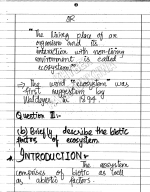 OR
"The living place of an
organism and its
interaction with non-living
environment is called
ecosystem."
→ The word "ecosystem" was
first suggested by
in 1894.
Question II:-
(b) Briefly describe the biotic
factors of ecosystem.
INTRODUCTION:-
The ecosystem
comprises of biotic as well
as abiotic factors.